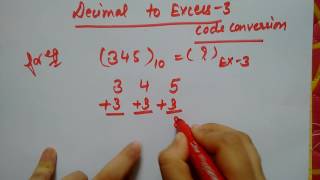 Decimal to Excess-3
code conversion
for eg (345)10 = (?)EX-3
3 4 5
+3 +3 +3